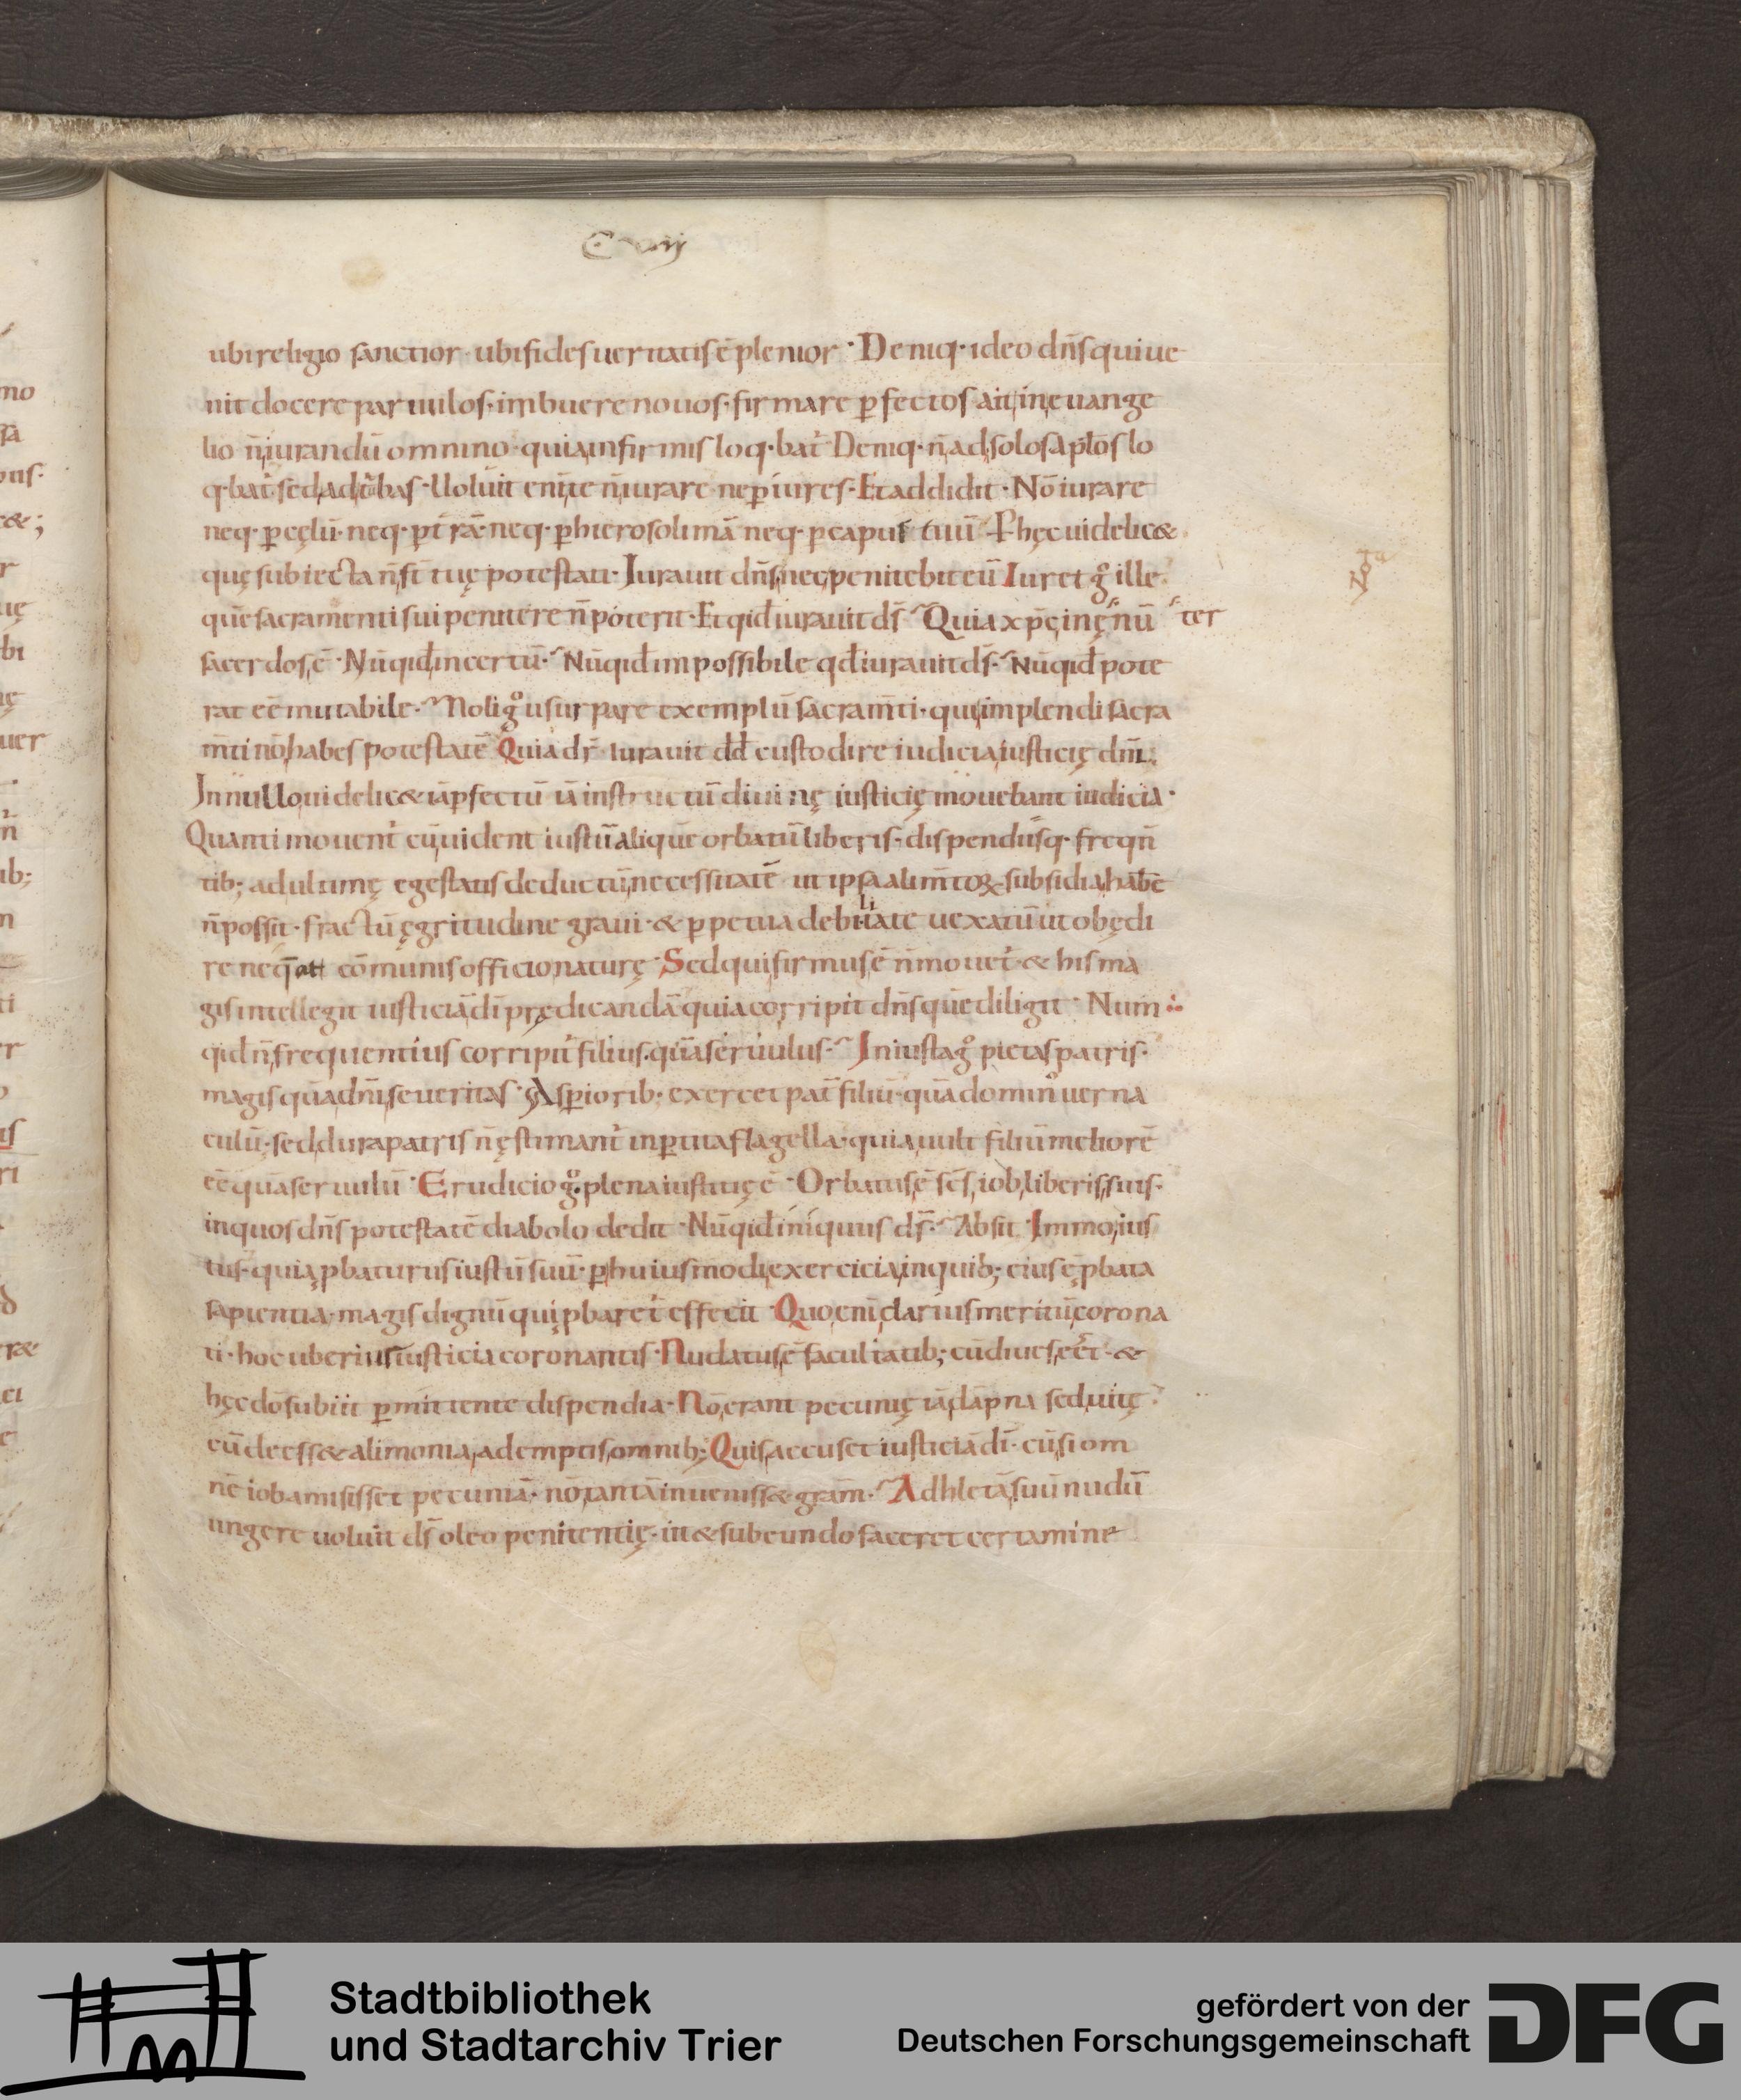 ubi religio sanctior · ubi fides ueritatis ē plenior · Deniq· ideo dn̄s qui ue
nit docere paruulos · imbuere nouos · firmare p̱fectos ait in euange
lio n̄ iurandū omnino · quia infirmis loq·bat᷑ Deniq· n̄ ad solos ap̄los lo
q·bat᷑ sed ad t᷑bas · Uoluit eni te n̄ iurare ne p̱iures · Et addidit · Nō iurare
neq· p̱ cęlū · neq· p̱ t᷑rā · neq· p̱ hierosolimā neq· p̱ caput tuū · P̱ hęc uidelic&
quę subiecta n̄ st̄ tuę potestati · Iurauit dn̄s nec penitebit eū Iuret gͦ ille
quē sacramenti sui penitere n̄ poterit · Et qid iurauit ds̄ Quia xp̄ę in ęt᷑nū
ter
sacerdos ē · Nūqid incertū · Nūqid impossibile qd iurauit ds̄ · Nūqid pote
rat eē mutabile · Noli gͦ usurpare exemplū sacram̄ti · qui implendi sacra
m̄ti nō habes potestatē Quia dr̄ iurauit dd̄ custodire iudicia iusticię dn̄i ·
In nullo uidelic& iā p̱fectū iā instructū diuinę iusticię mouebant iudicia ·
Quanti mouent᷑ cū uident iustū aliquē orbatū liberis · dispendiisq· freqn̄
tib; ad ultimę egestatis deductū necessitatē ut ipsa alim̄toꝝ subsidia habē
n̄ possit · fractū ęgritudine graui · & p̱petua debilitate uexatū ut obędi
re neq̄at cōmunis officio naturę · Sed qui firmus ē n̄ mouet᷑ · & his ma
gis intellegit iusticiā dī prędicandā quia corripit dn̄s quē diligit · Num
qid n̄ frequentius corripit᷑ filius · quā seruulus · Iniusta gͦ pietas patris ·
magis quā dn̄i seueritas · Asp̱iorib; exercet pat᷑ filiū · quā dominͦ uerna
culū · sed dura patris n̄ ęstimant᷑ inp̱tita flagella · quia uult filiū meliorē
eē quā seruulū · Erudicio gͦ plena iustitię ē · Orbatus ē sc̄s iob liberis suis ·
in quos dn̄s potestatē diabolo dedit · Nūqid iniquus ds̄ · Absit · Immo ius
tus · quia p̱baturus iustū suū · p̱ huiusmodi exercicia in quib; eius ē p̱bata
sapientia · magis dignū qui p̱baret᷑ effecit · Quo eni clarius meritū corona
ti · hoc uberius iusticia coronantis · Nudatus ē facultatib; cū diues eēt · &
hęc dō subiit p̱mittente dispendia · Nō erant pecunię iā dāpna sed uitę ·
cū deess& alimonia ademptis omnib; Quis accuset iusticiā dī · cū si om
nē iob amisisset pecuniā · nō tantā inueniss& grām · Adhletā suū nudū
ungere uoluit ds̄ oleo penitentię · ut & subeundo faceret certamine
Nota
Stadtbibliothek
und Stadtarchiv Trier
gefördert von der
Deutschen Forschungsgemeinschaft
DFG